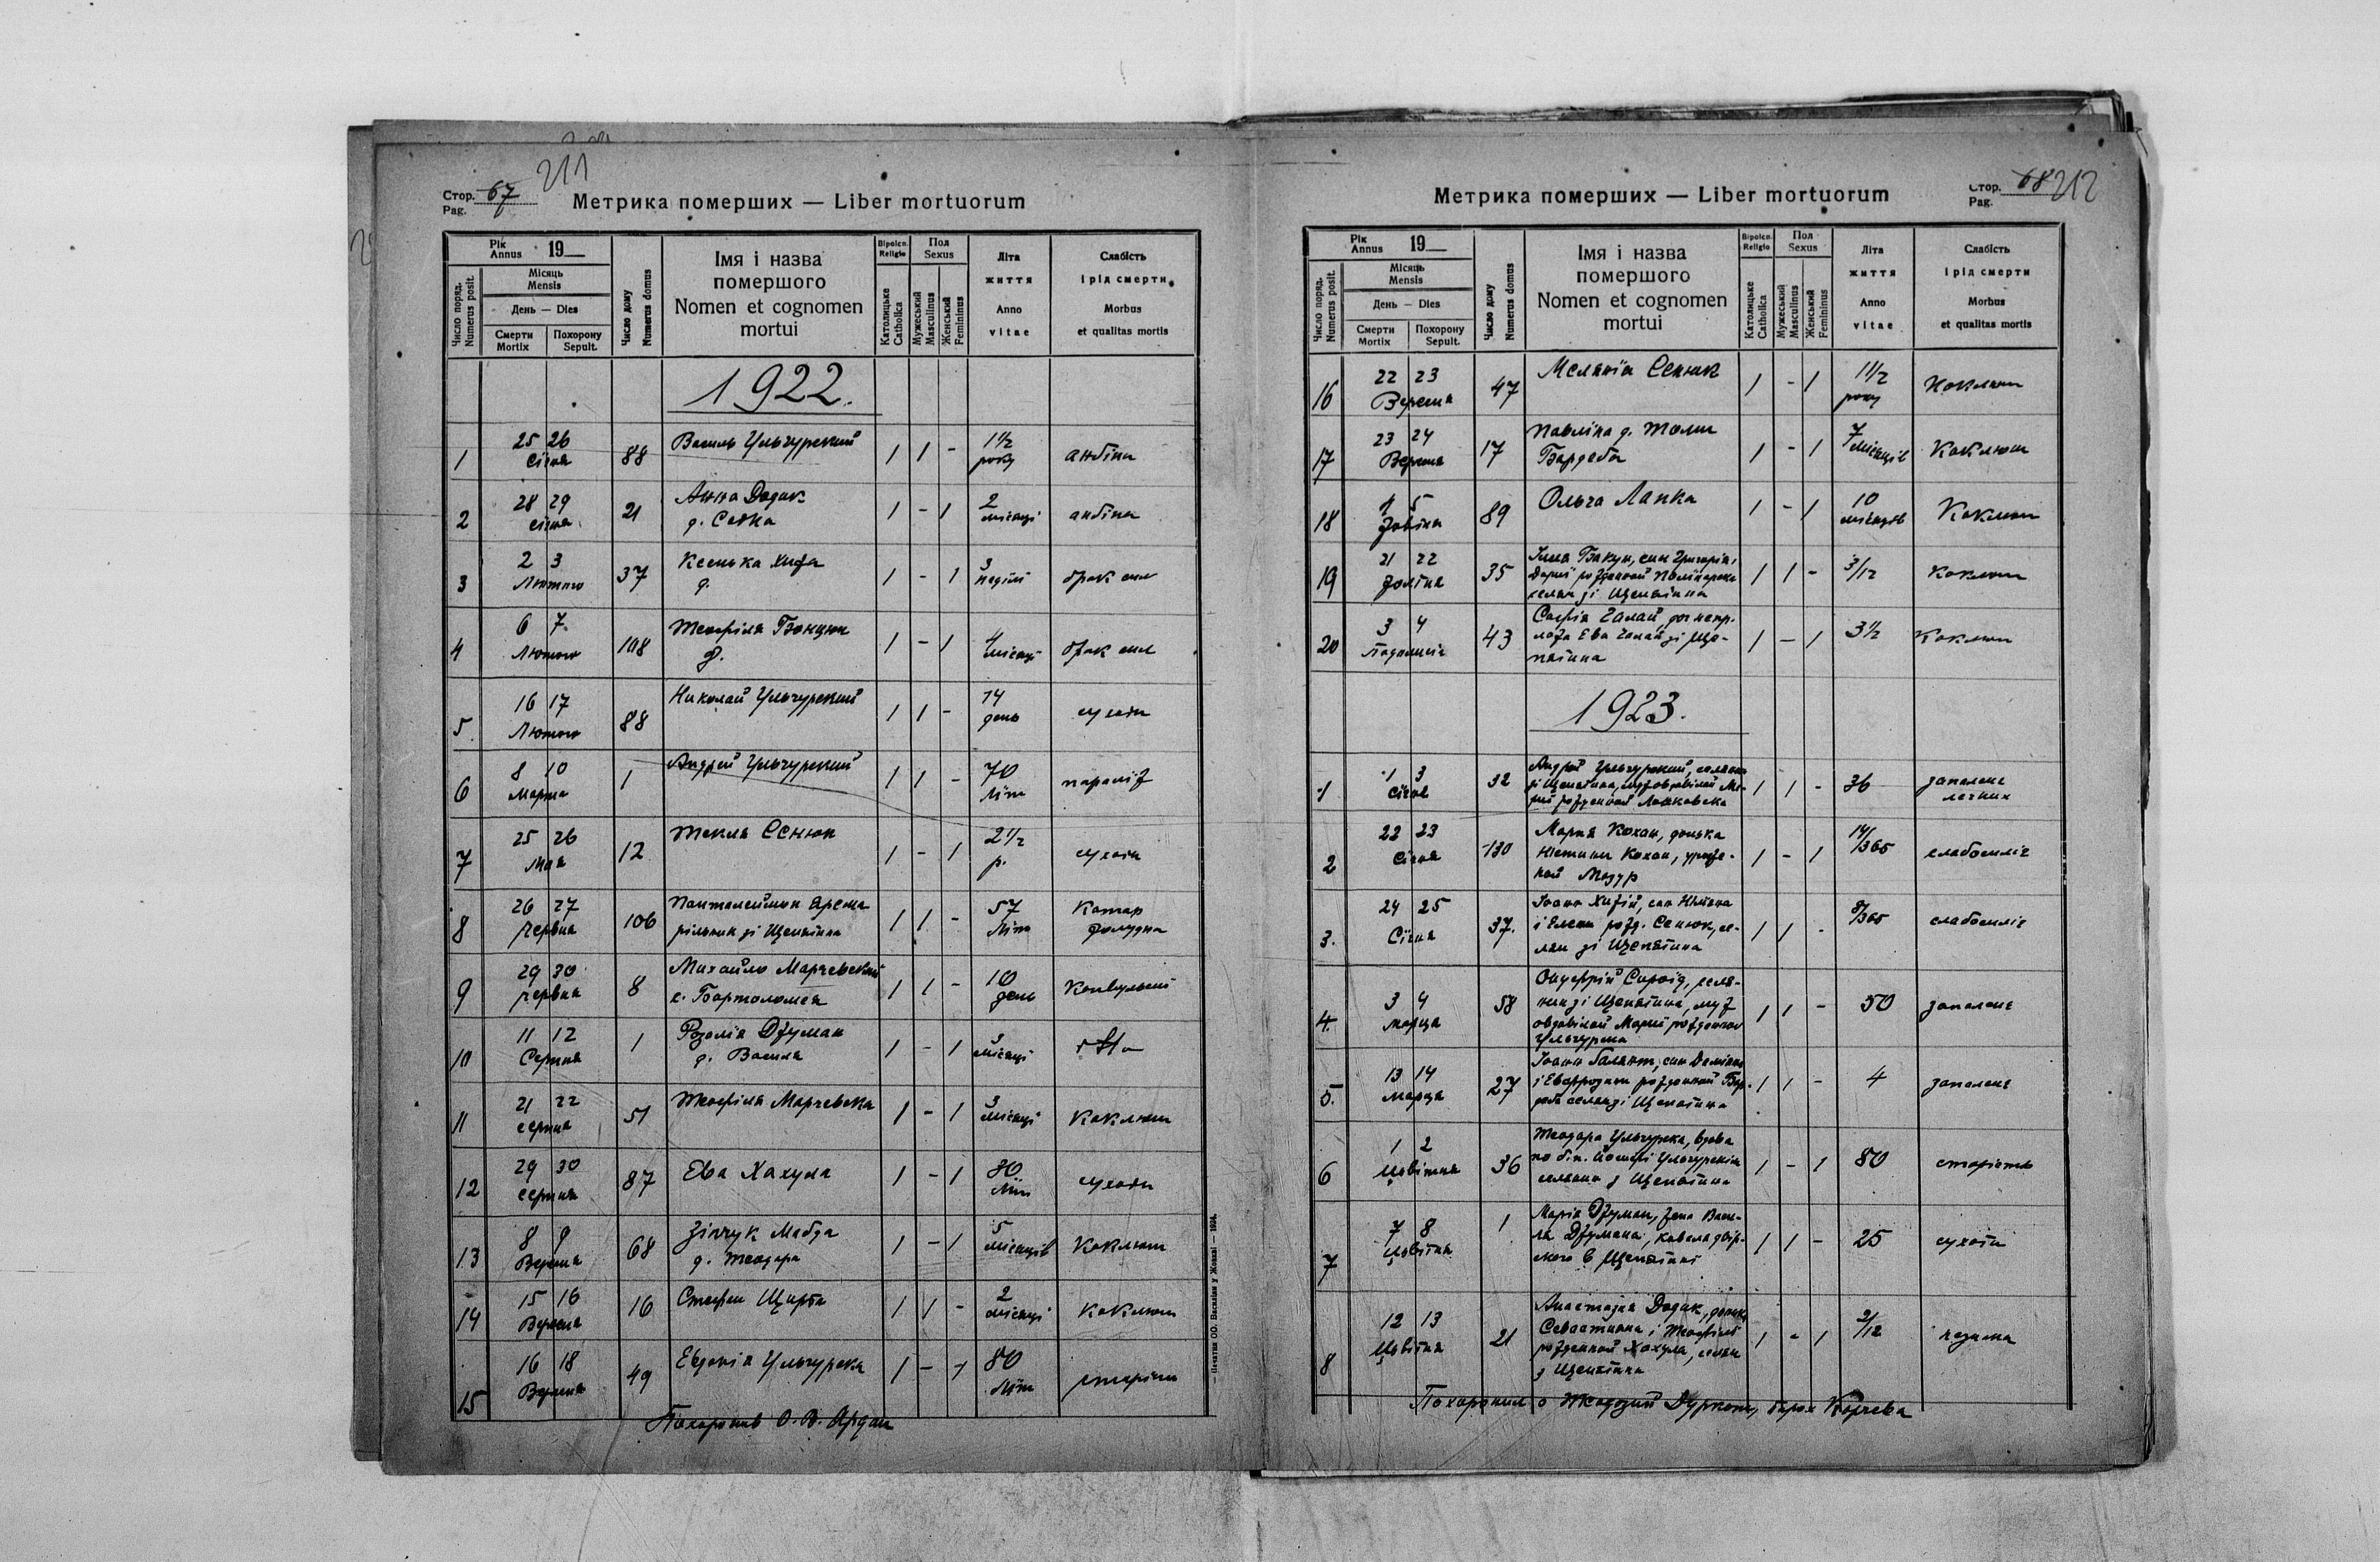 Стор. 67
Pag.
211
Метрика померших — Liber mortuorum
Рік
Annus 19
Число поряд.
Numerus posit.
Місяць
Mensis
День — Dies
Смерти
Mortix
Похорону
Sepult.
Число дому
Numerus domus
Імя і назва
помершого
Nomen et cognomen
mortui
Віроісп.
Religio
Католицьке
Catholica
Пол
Sexus
Мужеський
Masculinus
Женський
Femininus
Літа
життя
Anno
vitae
Слабість
і рід смерти
Morbus
et qualitas mortis
1922.
1 25 26 Січня 88 Василь Ульгурский 1 1 - 1½ року
2 28 29 січня 21 Анна Додик 1 - 1 2 місяці
д. Севка
3 2 3 Лютого 37 Ксенька 1 - 1 3 неділі брак сил
д.
4 6 7 Лютого 108 Теофіля 1 - 1 4 місяці брак сил
д.
5 16 17 Лютого 88 Николай Ульгурский 1 1 - 14 день сухоти
6 8 10 Марта 1 Андрей Ульгурский 1 1 - 70 літ параліж
7 25 26 Мая 12 Текля Сенюк 1 - 1 2½ р. сухоти
8 26 27 Червня 106 Панталеймон Ярема 1 1 - 57 літ Катар
рільник зі Щепятина жолудка
9 29 30 червня 8 Михайло Марчевский 1 1 - 10 день Конвульсиї
с. Бартоломея
10 11 12 Серпня 1 Розалія Джуман 1 - 1 3 місяці
д. Василя
11 21 22 серпня 51 Теофіля Марчевска 1 - 1 3 місяці Коклюш
12 29 30 серпня 87 Ева Хахула 1 - 1 30 літ сухоти
13 8 9 Вересня 68 Зінчук Магда 1 - 1 5 місяців Коклюш
д. Теодора
14 15 16 Вересня 16 Стефан Щирба 1 1 - 2 місяці Коклюш
15 16 18 Вересня 49 Евдокія Ульгурска 1 - 1 80 літ старість
Похоронив О. В. Ардан
— Печатня ОО. Василіян у Жовкві — 1924.
Стор. 68
Pag.
212
Метрика померших — Liber mortuorum
Рік
Annus 19
Число поряд.
Numerus posit.
Місяць
Mensis
День — Dies
Смерти
Mortix
Похорону
Sepult.
Число дому
Numerus domus
Імя і назва
помершого
Nomen et cognomen
mortui
Віроісп.
Religio
Католицьке
Catholica
Пол
Sexus
Мужеський
Masculinus
Женський
Femininus
Літа
життя
Anno
vitae
Слабість
і рід смерти
Morbus
et qualitas mortis
16 22 23 Вересня 47 Меланія Сенюк 1 - 1 1 1/2 року Коклюш
17 23 24 Вересня 17 Павліна д. Томи 1 - 1 7 місяців Коклюш
Бардеба
18 5 Жовтня 89 Ольга Лапка 1 - 1 10 місяців Коклюш
19 21 22 Жовтня 35 Ілля Бакун, син Григорія і 1 1 - 3/12 коклюш
Дариї рожденной
селян зі Щепятина
20 3 4 Падолиста 43 Софія Галай, доч непр. 1 - 1 3½ Коклюш
ложа Ева Галай зі Ще-
пятина
1923.
1 1 3 Січня 32 Андрій Ульгурский, селянин 1 1 - 36 запаленє
зі Щепятина, муж овдовілой Ма- легких
риї рожденной Лошковска
2 22 23 Січня 130 Марія Кохан, донька 1 - 1 14/365 слабосиліє
Юстини Кохан, урожд-
ной Мазур
3. 24 25 Січня 37. Іоанн Хижій, син Юліяна 1 1 - 8/365 слабосиліє
і Елени рожд. Сенюк, се-
лян зі Щепятина
4. 3 4 марца 58 Онуфрій Сироїд, селя- 1 1 - 50 запаленє
нин зі Щепятина, муж
овдовілой Мариї рожденной
Ульгурска
5. 13 14 марца 27 Іоанн Галянт, син Даміяна 1 1 - 4 запаленє
і Евфрозини рожденной Бар-
деба селян зі Щепятина
6 1 2 Цвітня 36 Теодора Ульгурска, вдова 1 - 1 80 старість
по бл. Йосифі Ульгурскім
селянин з Щепятина
7 7 8 Цвітня 1 Марія Джуман, жена Васи- 1 1 - 25 сухоти
ля Джумана, коваля двір-
ского в Щепятині
8 12 13 Цвітня 21 Анастазія Додик, донька 1 - 1 2/12
Севастияна і Теофілї
рожденной Хахула, селян
з Щепятина
Похоронил о Теодозий Дуркот, парох Корчева